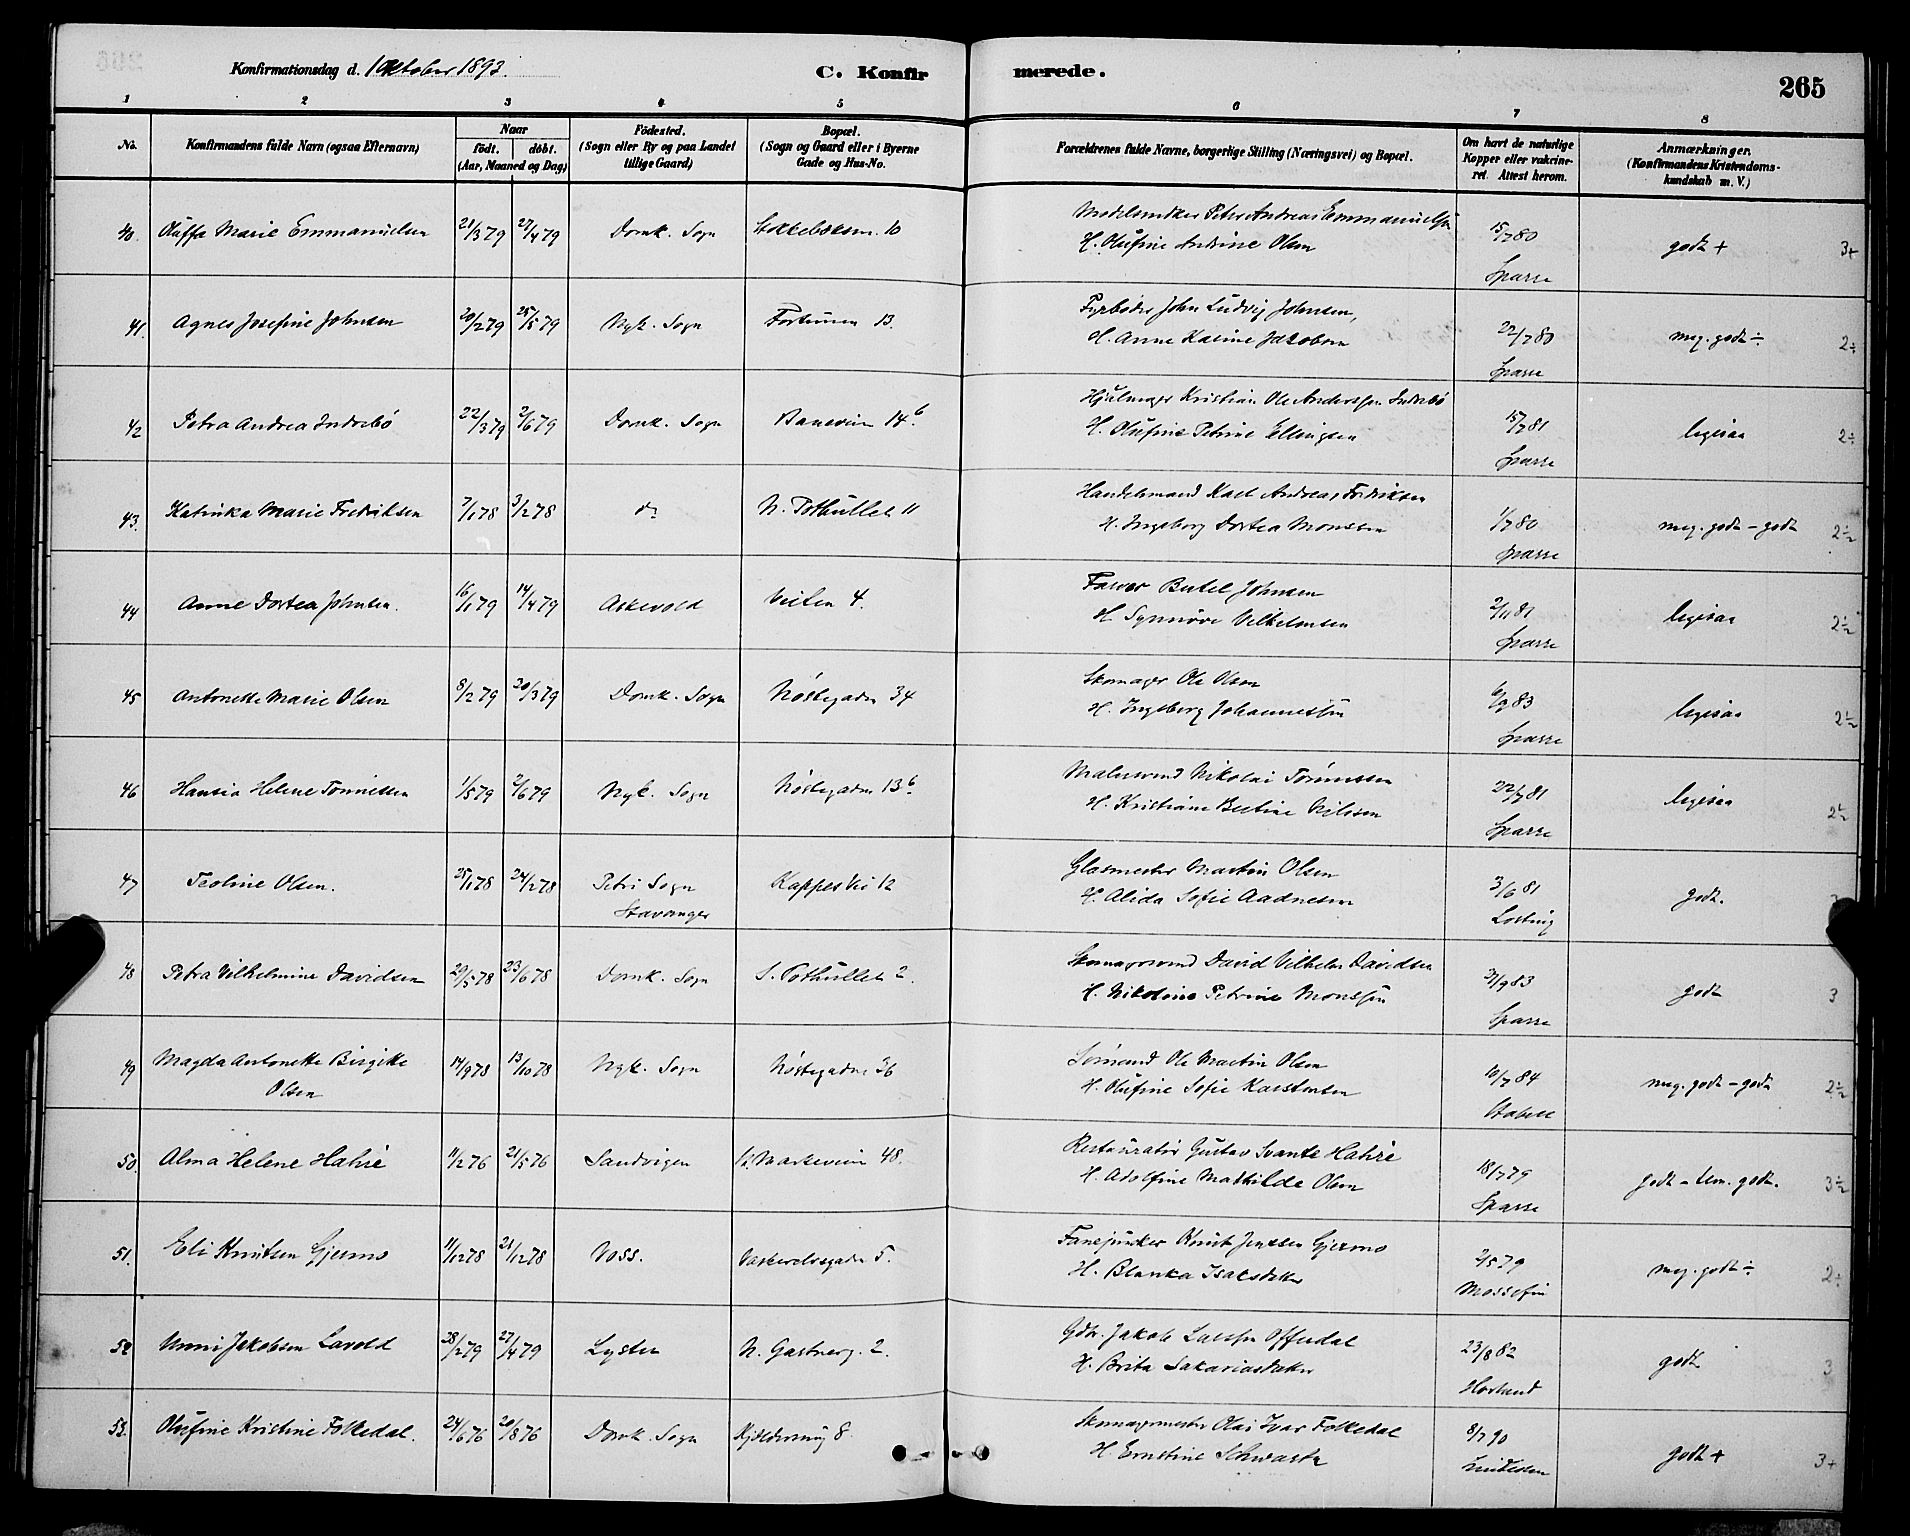 Konfirmationsdag d. 1 Oktober 1893.
C. Konfirmerede.
265
1 2 3 4 5 6 7 8
No.
Konfirmandens fulde Navn (ogsaa Efternavn)
Naar
födt. döbt.
(Aar, Maaned og Dag)
Födested.
(Sogn eller By og paa Landet tillige Gaard)
Bopæl.
(Sogn og Gaard eller i Byerne Gade og Hus-No.
Forældrenes fulde Navne, borgerlige Stilling (Næringsvei) og Bopæl.
Om havt de naturlige Kopper eller vakcineret. Attest herom.
Anmærkninger.
(Konfirmandens Kristendomskundskab m. V.)
40. Oluffa Marie Emmanuelsen 21/3 79 27/4 79 Domk. Sogn 10 Peter Andreas Emmanuelsen 15/7 80 godt + 3+
H. Olufine Andrine Olsen Sparre
41. Agnes Josefine Johnsen 20/2 79 25/5 79 Nyk. Sogn Fortunen 13. Fyrböder John Ludvig Johnsen, 22/7 80 meg. godt ÷ 2÷
H. Anne Karine Jakobsen Sparre
42 Petra Andrea Indrebö 22/3 79 2/6 79 Domk. Sogn 14 b. Hjulmager Kristian Ole Anderssen Indrebö 15/7 81 ligesaa 2÷
H. Olufine Petrine Ellingsen Sparre
43. Katinka Marie Fredriksen 7/1 78 3/2 78 do N. Pothullet 11 Handelsmand Karl Andreas Fredriksen 1/7 80 meg. godt - godt 2½
H. Ingeborg Dortea Monssen Sparre
44 Anne Dortea Johnsen. 16/1 79 14/4 79 Askevold Veiten 4. Farver Bertel Johnsen 2/11 81 ligesaa 2½
H. Synnöve Vilhelmsen Sparre
45 Antonette Marie Olsen 8/2 79 20/3 79 Domk. Sogn Nöstegaden 34 Skomager Ole Olsen 6/9 83 ligesaa 2½
H. Ingeborg Johannessen Sparre
46 Hansia Helene Tönnessen 1/5 79 2/6 79 Nyk. Sogn Nöstegaden 13 b. Malersvend Nikolai Tönnessen 22/7 81 ligesaa 2½
H. Kristiane Bertine Nilssen Sparre
47 Teoline Olsen. 25/1 78 24/2 78 Petri Sogn Kappes Vei 12 Glasmester Martin Olsen 3/6 81 godt.
Stavanger H. Alida Sofie Aadnesen
48 Petra Vilhelmine Davidsen 29/5 78 23/6 78 Domk. Sogn S. Pothullet 2. Skomagersvend David Vilhelm Davidsen godt 3
H. Nikoline Petrine Monssen Sparre
49 Magda Antonette Birgitte 14/9 78 13/10 78 Nyk. Sogn Nöstegaden 36 Sömand Ole Martin Olsen 10/7 84 meg. godt - godt 2½
Olsen H. Olufine Sofie Karstensen Stabell
50 Alma Helene Hahre 11/2 76 21/5 76 Sandvigen Markeveien 48. Restauratör Gustav Svante Hahre 18/7 79 godt - tem. godt. 3½
H. Adolfine Mathilde Olsen Sparre
51. Eli Knutsen Gjermo 11/12 78 21/12 78 Voss. Vaskerelvsgaden 5. Fanejunker Knut Jenssen Gjermo meg. godt ÷ 2÷
H. Blanka Isaksdatter
52 Unni Jakobsen Lavold 28/2 79 27/4 79 Lyster N. Gartnerg. 2. Gdbr. Jakob Larssen Offerdal 23/8 82 godt 3
H. Brita Sakariasdatter Hovland
53. Olufine Kristine Folkedal. 24/6 76 20/8 76 Domk. Sogn Kjeldersmug 8. Skomagermester Olai Ivar Folkedal 8/7 90 godt + 3+
H. Ernstine Schwartz